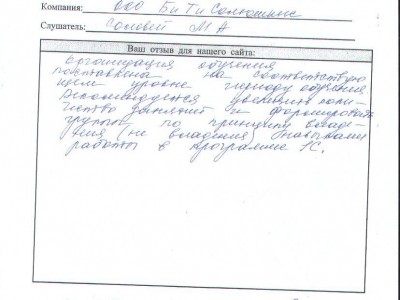 Компания: ООО БиТиСолюшнис
Слушатель: Соловей М А
Ваш отзыв для нашего сайта:
Организация обучения
поставлена на соответствую
щем уровне периоду обучения
Рекомендуется увеличить коли-
чество занятий и формировать
группы по принципу владе-
ния (не владения) навыками
работы в программе 1С.